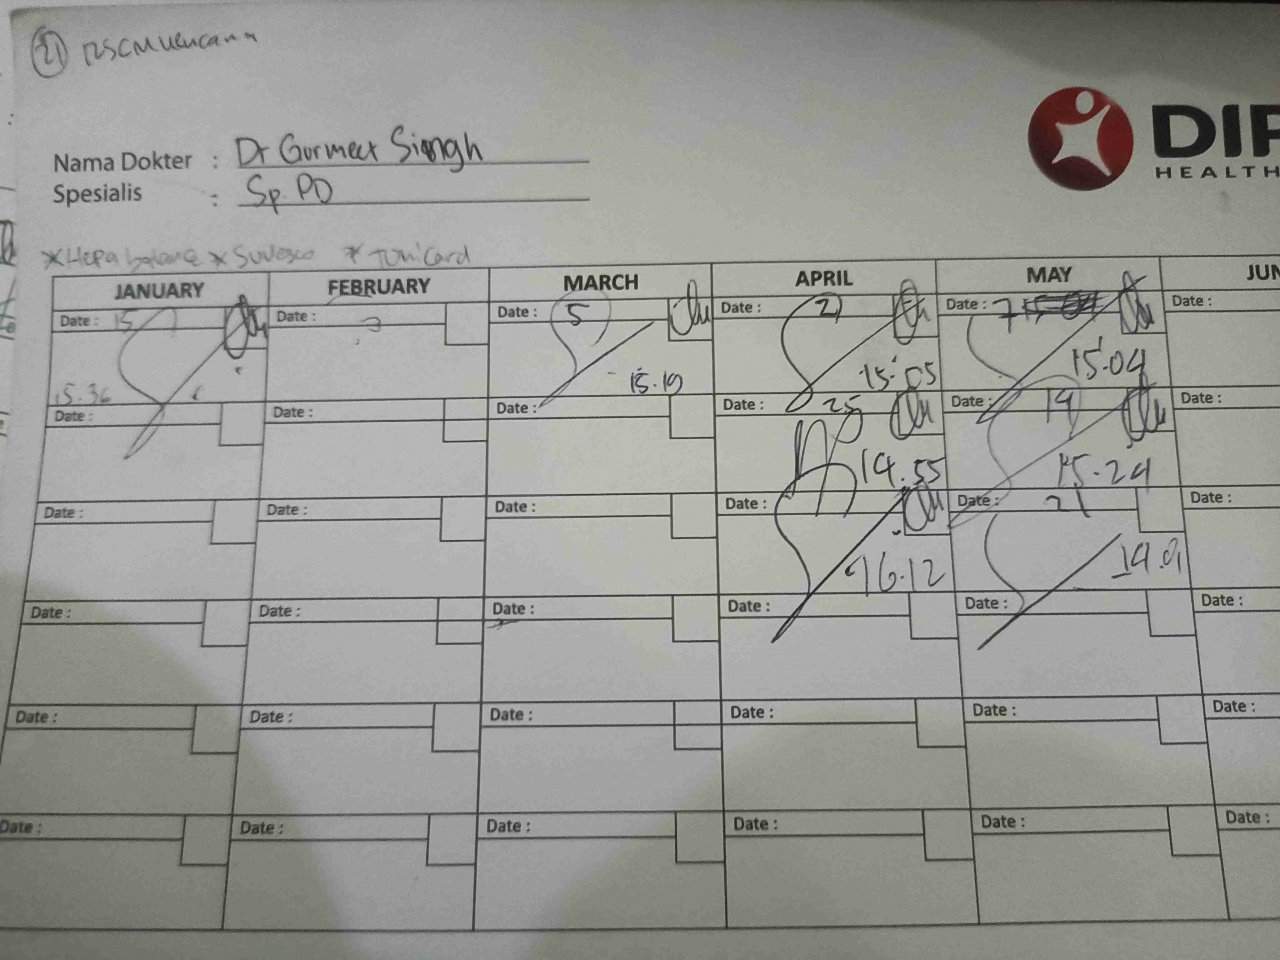 21 RSCM Kencana
DIP
HEALTH
Nama Dokter : Dr Gurmeet Singh
Spesialis : Sp. PD
*Hepa balance * * Tonicard
JANUARY FEBRUARY MARCH APRIL MAY JUN
Date : 15 Date : 3 Date : 5 Date : 2 Date : 7 Date :
15.36 15.19 15.05 15.04
Date : Date : Date : Date : 25 Date : 19 Date :
14.55 15.24
Date : Date : Date : Date : Date : 21 Date :
16.12 14.01
Date : Date : Date : Date : Date : Date :
Date : Date : Date : Date : Date : Date :
Date : Date : Date : Date : Date : Date :